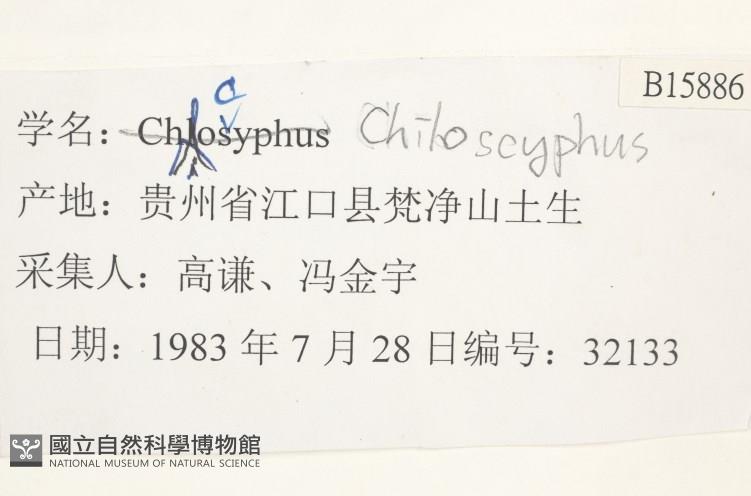 B15886
学名：Chlosyphus Chiloscyphus
c
产地：贵州省江口县梵净山土生
采集人：高谦、冯金宇
日期：1983 年 7 月 28 日编号：32133
國立自然科學博物館
NATIONAL MUSEUM OF NATURAL SCIENCE